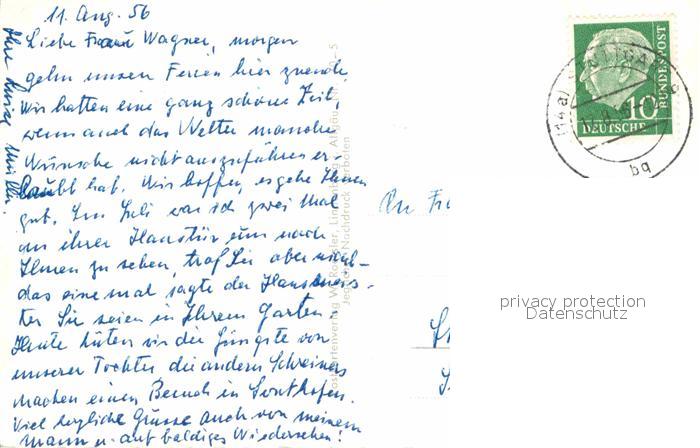 11. Aug. 56
Liebe Frau Wagner, morgen
gehn unsere Ferien hier zuende
Wir hatten eine ganz schöne Zeit,
wenn auch das Wetter manche
Wünsche nicht auszuführen er-
laubt hat. Wir hoffen, es gehe Ihnen
gut. Im Juli war ich zwei Mal
an ihrer Haustür um nach
Ihnen zu sehen, traf Sie aber nicht-
das eine mal sagte der Hausmeis-
ter Sie seien in Ihrem Garten
Heute hüten wir die Jüngste von
unserer Tochter die andern Schreiners
machen einen Besuch in Sonthofen.
Viel herzliche Grüsse auch von meinem
Mann u. auf baldiges Wiedersehen!
Ihre Luise Müller.
Postkartenverlag Lindenberg i. Allgäu
Nachdruck verboten
An Fr
DEUTSCHE
BUNDESPOST
10
(14a) STUTTGART 9
bq
privacy protection
Datenschutz